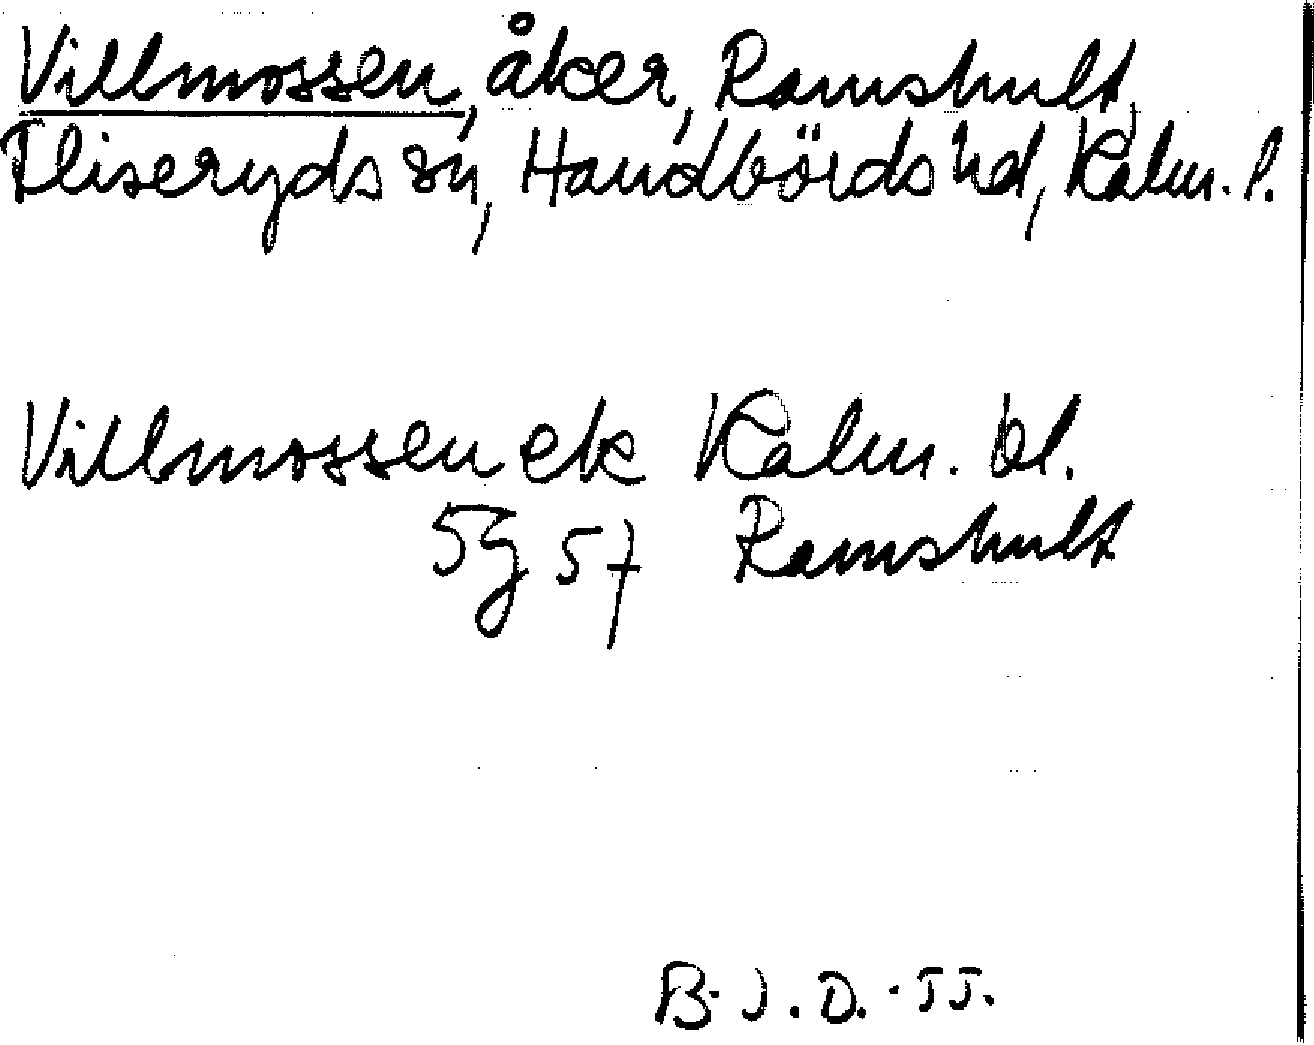 Villmossen, åker, Ramshult,
Fliseryds sn, Handbörds hd, Kalm. l.
Villmossen ek Kalm. bl.
5g 57 Ramshult
B. J. D. - JJ.